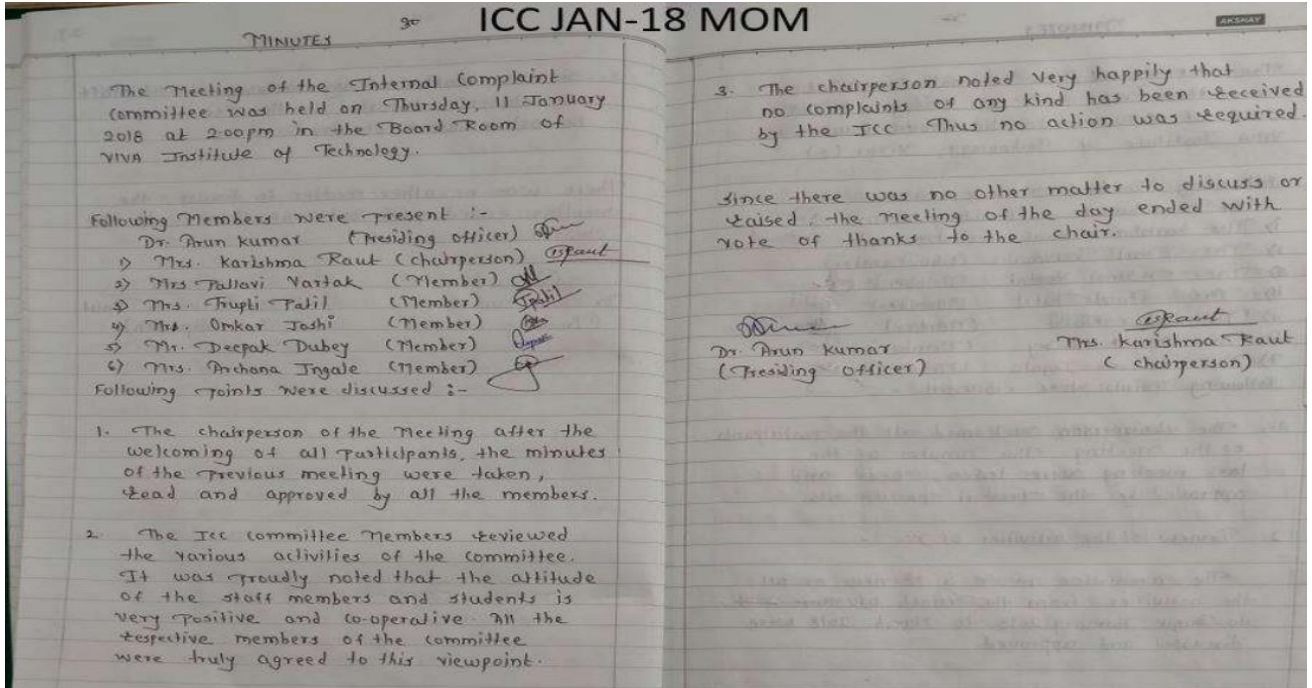 ICC JAN-18 MOM
30
MINUTES
The Meeting of the Internal Complaint
Committee was held on Thursday, 11 January
2018 at 2:00pm in the Board Room of
VIVA Institute of Technology.
Following Members were Present :-
Dr. Arun Kumar (Presiding officer)
1) Mrs. Karishma Raut (chairperson) Raut
2) Mrs Pallavi Vartak (Member)
3) Mrs. Trupti Patil (Member) Patil
4) Mrs. Omkar Joshi (Member)
5) Mr. Deepak Dubey (Member)
6) Mrs. Archana Ingale (Member)
Following Points were discussed :-
1. The chairperson of the Meeting after the
welcoming of all Participants, the minutes
of the Previous meeting were taken,
read and approved by all the members.
2. The Icc committee Members reviewed
the various activities of the committee.
It was Proudly noted that the attitude
of the staff members and students is
very Positive and co-operative. All the
respective members of the committee
were truly agreed to this viewpoint.
AKSHAY
3. The chairperson noted very happily that
no complaints of any kind has been received
by the ICC Thus no action was required.
Since there was no other matter to discuss or
raised, the Meeting of the day ended with
vote of thanks to the chair.
Dr. Arun Kumar
(Presiding officer)
Raut
Mrs. Karishma Raut
(chairperson)